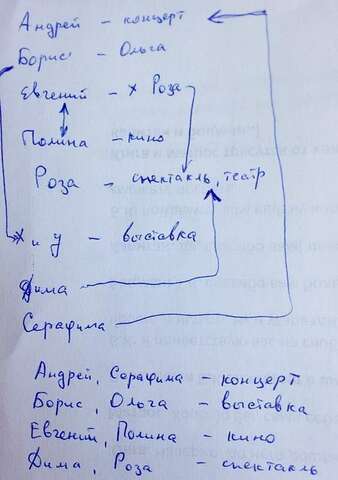 Андрей – концерт
Борис – Ольга
Евгений – х Роза
Полина – кино
Роза – спектакль, театр
х и у – выставка
Дима
Серафима
Андрей, Серафима – концерт
Борис, Ольга – выставка
Евгений, Полина – кино
Дима, Роза – спектакль